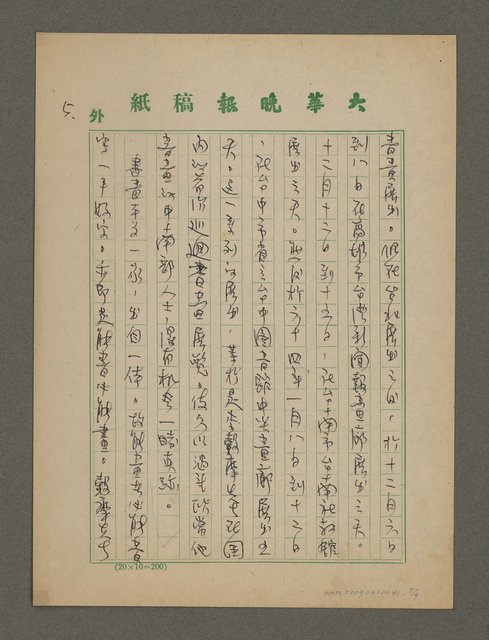 大華晚報稿紙
外
5、
書畫展出。但在台北展出之世,於十二月六日
到八日在高雄市台灣新聞報畫廊展出三天。
十二月十三日到十五日,在台南市台南社教館
展出三天。然後於六十四年一月八日到十二日
,在台中市省立台中圖書館中興畫廊展出五
天。這一系列的展出,
內的首次巡迴書畫展覽。
書畫的中南部人士,得有機會一睹真跡。
書畫本是一家,出自一體。故能畫者必能書
寫一手好字。亦即是能書必能畫。
(20×10=200)
5/9